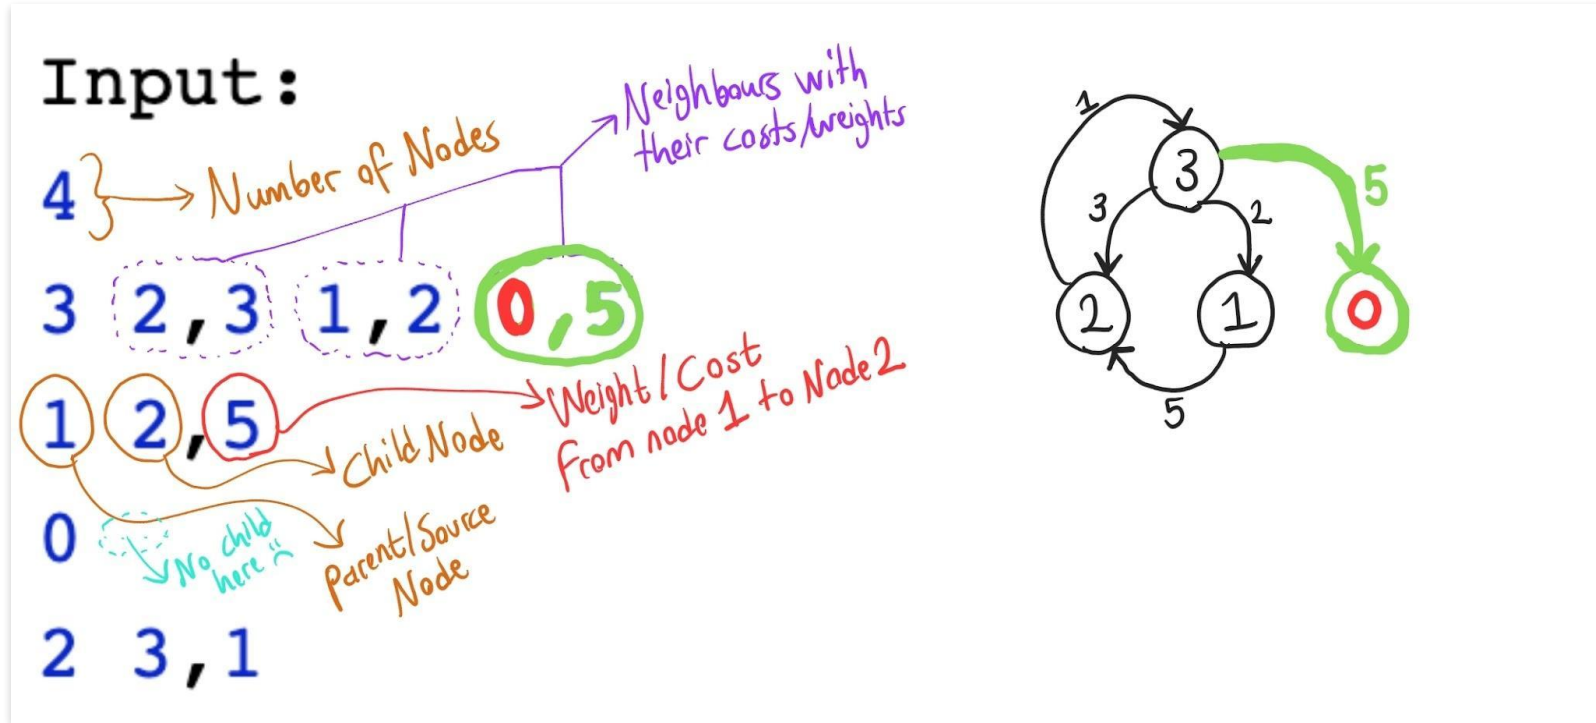 Input:
4
Number of Nodes
Neighbours with
their costs/weights
3 2,3 1,2 0,5
1 2,5
Weight/Cost
From node 1 to Node 2
Child Node
0
No child
here
Parent/Source
Node
2 3,1
1
3
5
3
2
2
1
0
5